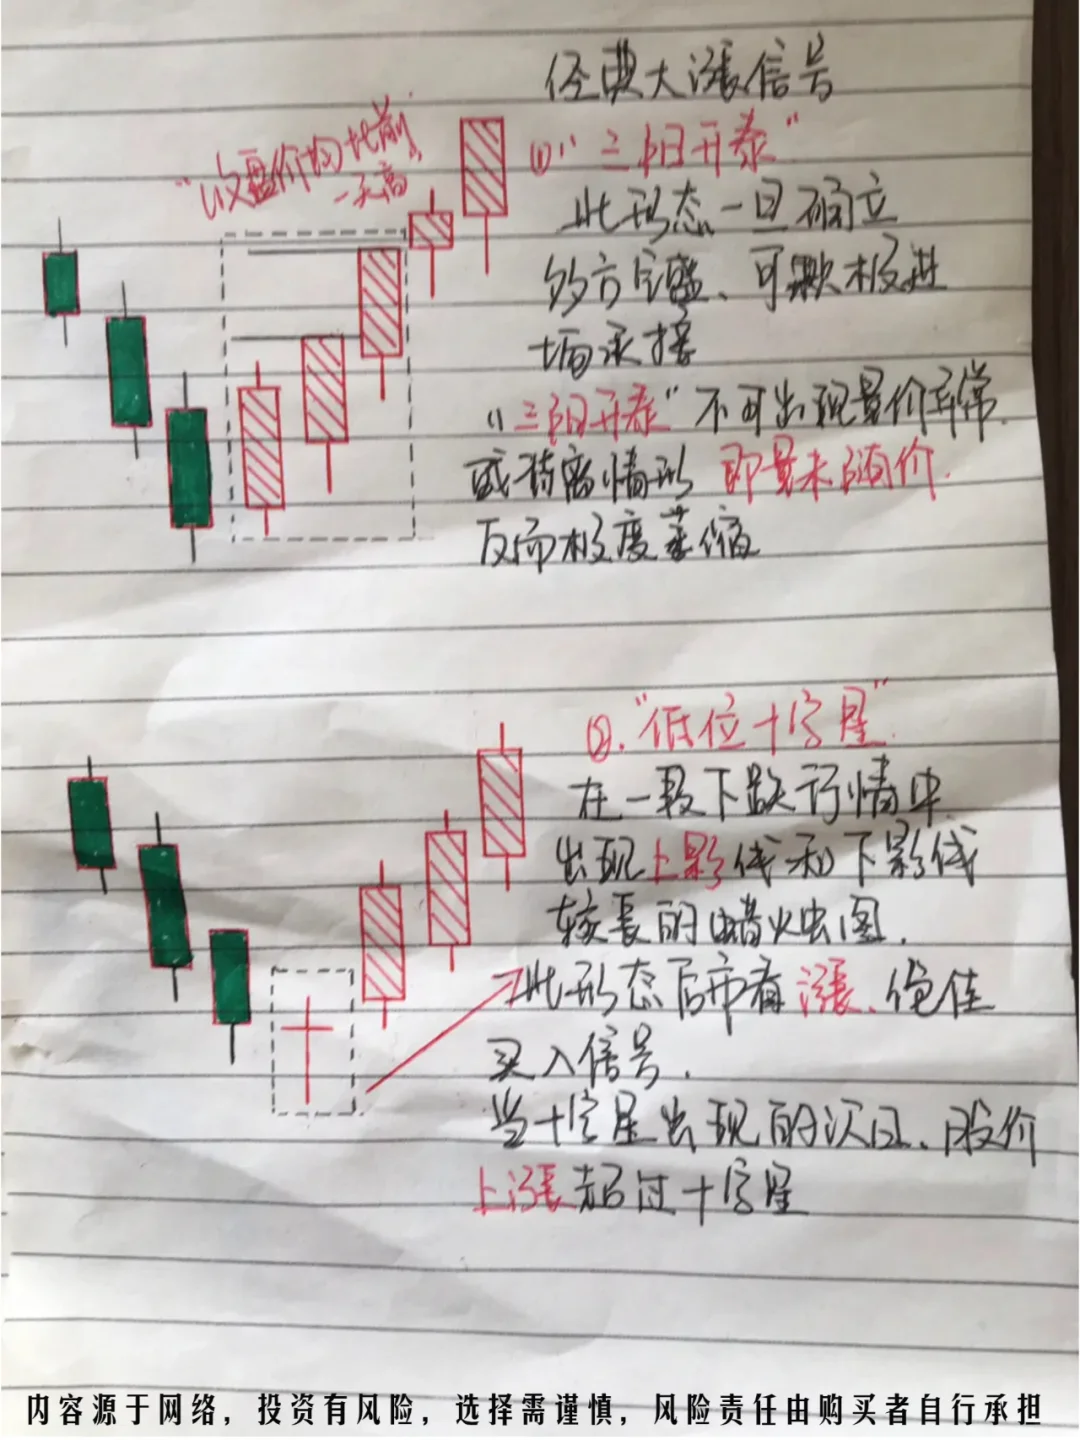 经典大涨信号
"收盘价均比前
一天高"
①"三阳开泰"
此形态一旦确立
多方气盛、可积极进
场承接
"三阳开泰"不可出现量价异常
或背离情形 即量未随价.
反而极度萎缩
②."低位十字星"
在一段下跌行情中
出现上影线和下影线
较长的蜡烛图.
此形态后市看涨、绝佳
买入信号.
当十字星出现的次日、股价
上涨超过十字星
内容源于网络，投资有风险，选择需谨慎，风险责任由购买者自行承担